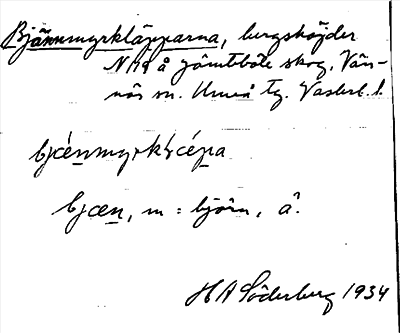 Bjännmyrkläpparna, bergshöjder
N 19 å Jämtböle skog, Vän-
näs sn. Umeå tg. Västerb. l.
bjænmyrkɭæpa
bjæn, m = björn, â.
H A Söderberg 1934